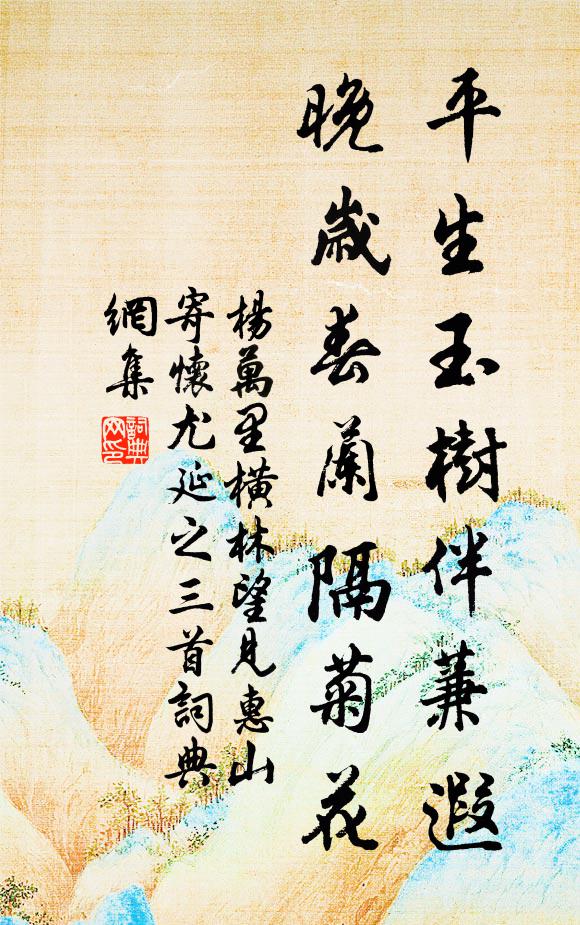 平生玉樹伴蒹遐
晚歲春蘭隔菊花
楊萬里橫林望見惠山
寄懷尤延之三首詞典
網集
詞典
网印